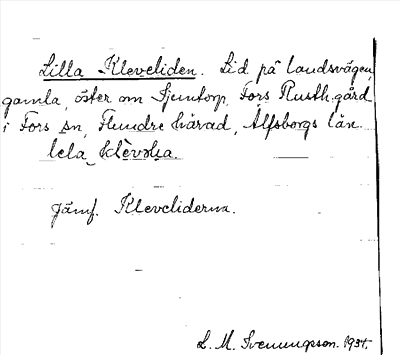 Lilla Kleveliden. Lid på landsvägen,
gamla, öster om Sjuntorp, Fors Rusth.gård
i Fors sn, Flundre härad, Älfsborgs län.
lela
Jämf. Klevliderna.
L. M. Svenungsson. 1934.